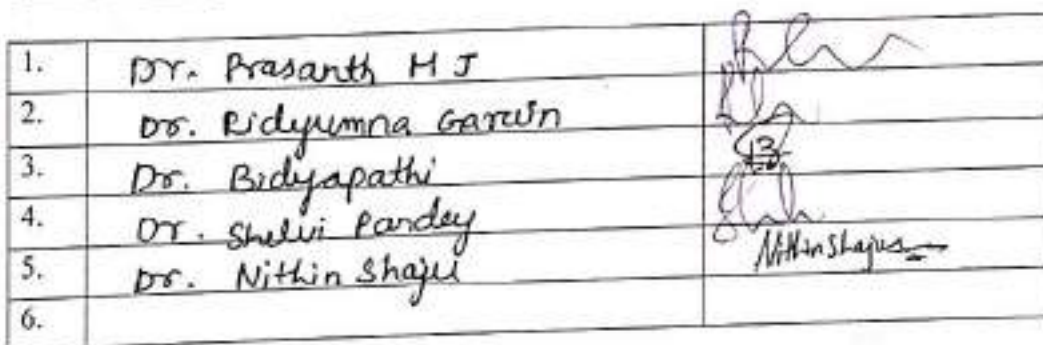 1. Dr. Prasanth H J
2. Dr. Ridyumna Garwin
3. Dr. Bidyapathi
4. Dr. Shelvi Pandey
5. Dr. Nithin Shaju Nithin Shajus
6.